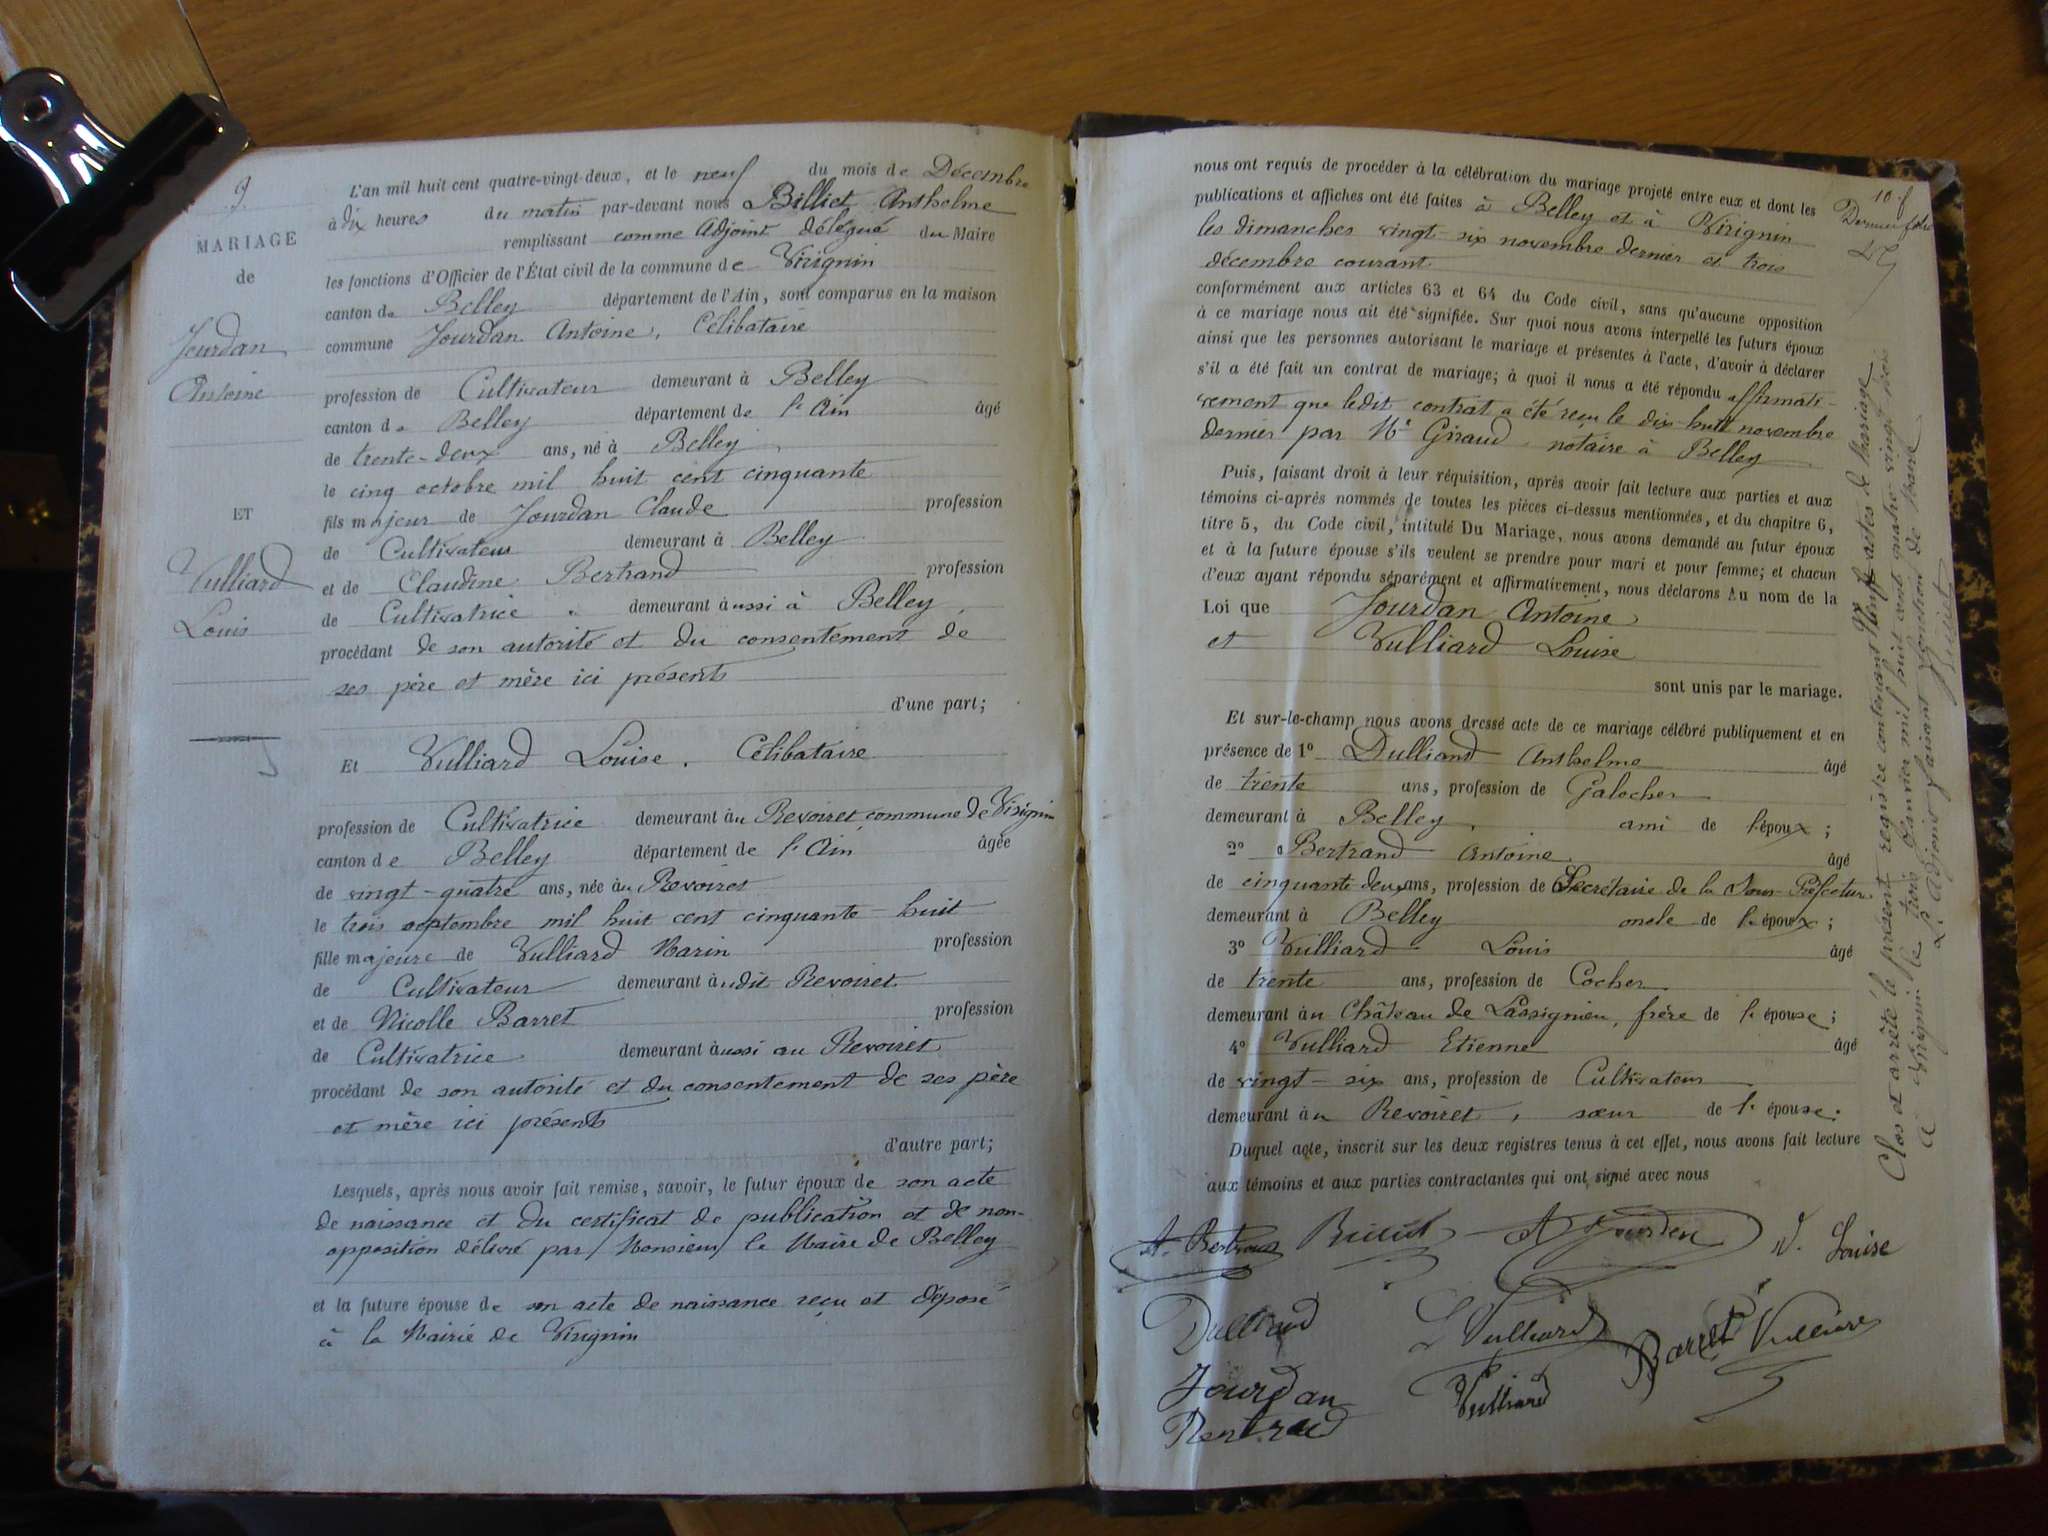 9
MARIAGE
de
Jourdan
Antoine
ET
Vulliard
Louis
L'an mil huit cent quatre-vingt-deux, et le neuf du mois de Décembre
à dix heures du matin par-devant nous Billiet Anthelme
remplissant comme Adjoint délégué du Maire
les fonctions d'Officier de l'État civil de la commune de Virignin
canton de Belley département de l'Ain, sont comparus en la maison
commune Jourdan Antoine, Célibataire
profession de Cultivateur demeurant à Belley
canton de Belley département de l'Ain âgé
de trente-deux ans, né à Belley
le cinq octobre mil huit cent cinquante
fils majeur de Jourdan Claude profession
de Cultivateur demeurant à Belley
et de Claudine Bertrand profession
de Cultivatrice demeurant aussi à Belley,
procédant de son autorité et du consentement de
ses père et mère ici présents
d'une part;
Et Vulliard Louise, Célibataire
profession de Cultivatrice demeurant au Revoiret, commune de Virignin
canton de Belley département de l'Ain âgée
de vingt-quatre ans, née au Revoiret
le trois septembre mil huit cent cinquante-huit
fille majeure de Vulliard Marin profession
de Cultivateur demeurant audit Revoiret
et de Nicolle Barret profession
de Cultivatrice demeurant aussi au Revoiret
procédant de son autorité et du consentement de ses père
et mère ici présents
d'autre part;
Lesquels, après nous avoir fait remise, savoir, le futur époux de son acte
de naissance et du certificat de publication et de non-
opposition délivré par Monsieur le Maire de Belley
et la future épouse de son acte de naissance reçu et déposé
à la Mairie de Virignin
nous ont requis de procéder à la célébration du mariage projeté entre eux et dont les
publications et affiches ont été faites à Belley et à Virignin
les dimanches vingt six novembre dernier et trois
décembre courant
conformément aux articles 63 et 64 du Code civil, sans qu'aucune opposition
à ce mariage nous ait été signifiée. Sur quoi nous avons interpellé les futurs époux
ainsi que les personnes autorisant le mariage et présentes à l'acte, d'avoir à déclarer
s'il a été fait un contrat de mariage; à quoi il nous a été répondu affirmati-
vement que ledit contrat a été reçu le dix-huit novembre
dernier par Me Giraud notaire à Belley
Puis, faisant droit à leur réquisition, après avoir fait lecture aux parties et aux
témoins ci-après nommés de toutes les pièces ci-dessus mentionnées, et du chapitre 6,
titre 5, du Code civil, intitulé Du Mariage, nous avons demandé au futur époux
et à la future épouse s'ils veulent se prendre pour mari et pour femme; et chacun
d'eux ayant répondu séparément et affirmativement, nous déclarons Au nom de la
Loi que Jourdan Antoine
et Vulliard Louise
sont unis par le mariage.
Et sur-le-champ nous avons dressé acte de ce mariage célébré publiquement et en
présence de 1° Dulliand Anthelme âgé
de trente ans, profession de Galocher
demeurant à Belley, ami de l'époux;
2° Bertrand Antoine âgé
de cinquante deux ans, profession de Secrétaire de la Sous Préfecture
demeurant à Belley oncle de l'époux;
3° Vulliard Louis âgé
de trente ans, profession de Cocher
demeurant au Château de Lassignieu, frère de l'épouse;
4° Vulliard Etienne âgé
de vingt-six ans, profession de Cultivateur
demeurant au Revoiret, sœur de l'épouse.
Duquel acte, inscrit sur les deux registres tenus à cet effet, nous avons fait lecture
aux témoins et aux parties contractantes qui ont signé avec nous
A. Bertrand Billiet A Jourdan V. Louise
Dulliand L Vulliard Barret Vulliard
Jourdan Vulliard
Bertrand
10 f
Dernier folio
Clos et arrêté le présent registre contenant Neuf actes de Mariage
à Virignin le trois Janvier mil huit cent quatre-vingt trois
L'Adjoint faisant fonction de Maire
Billiet